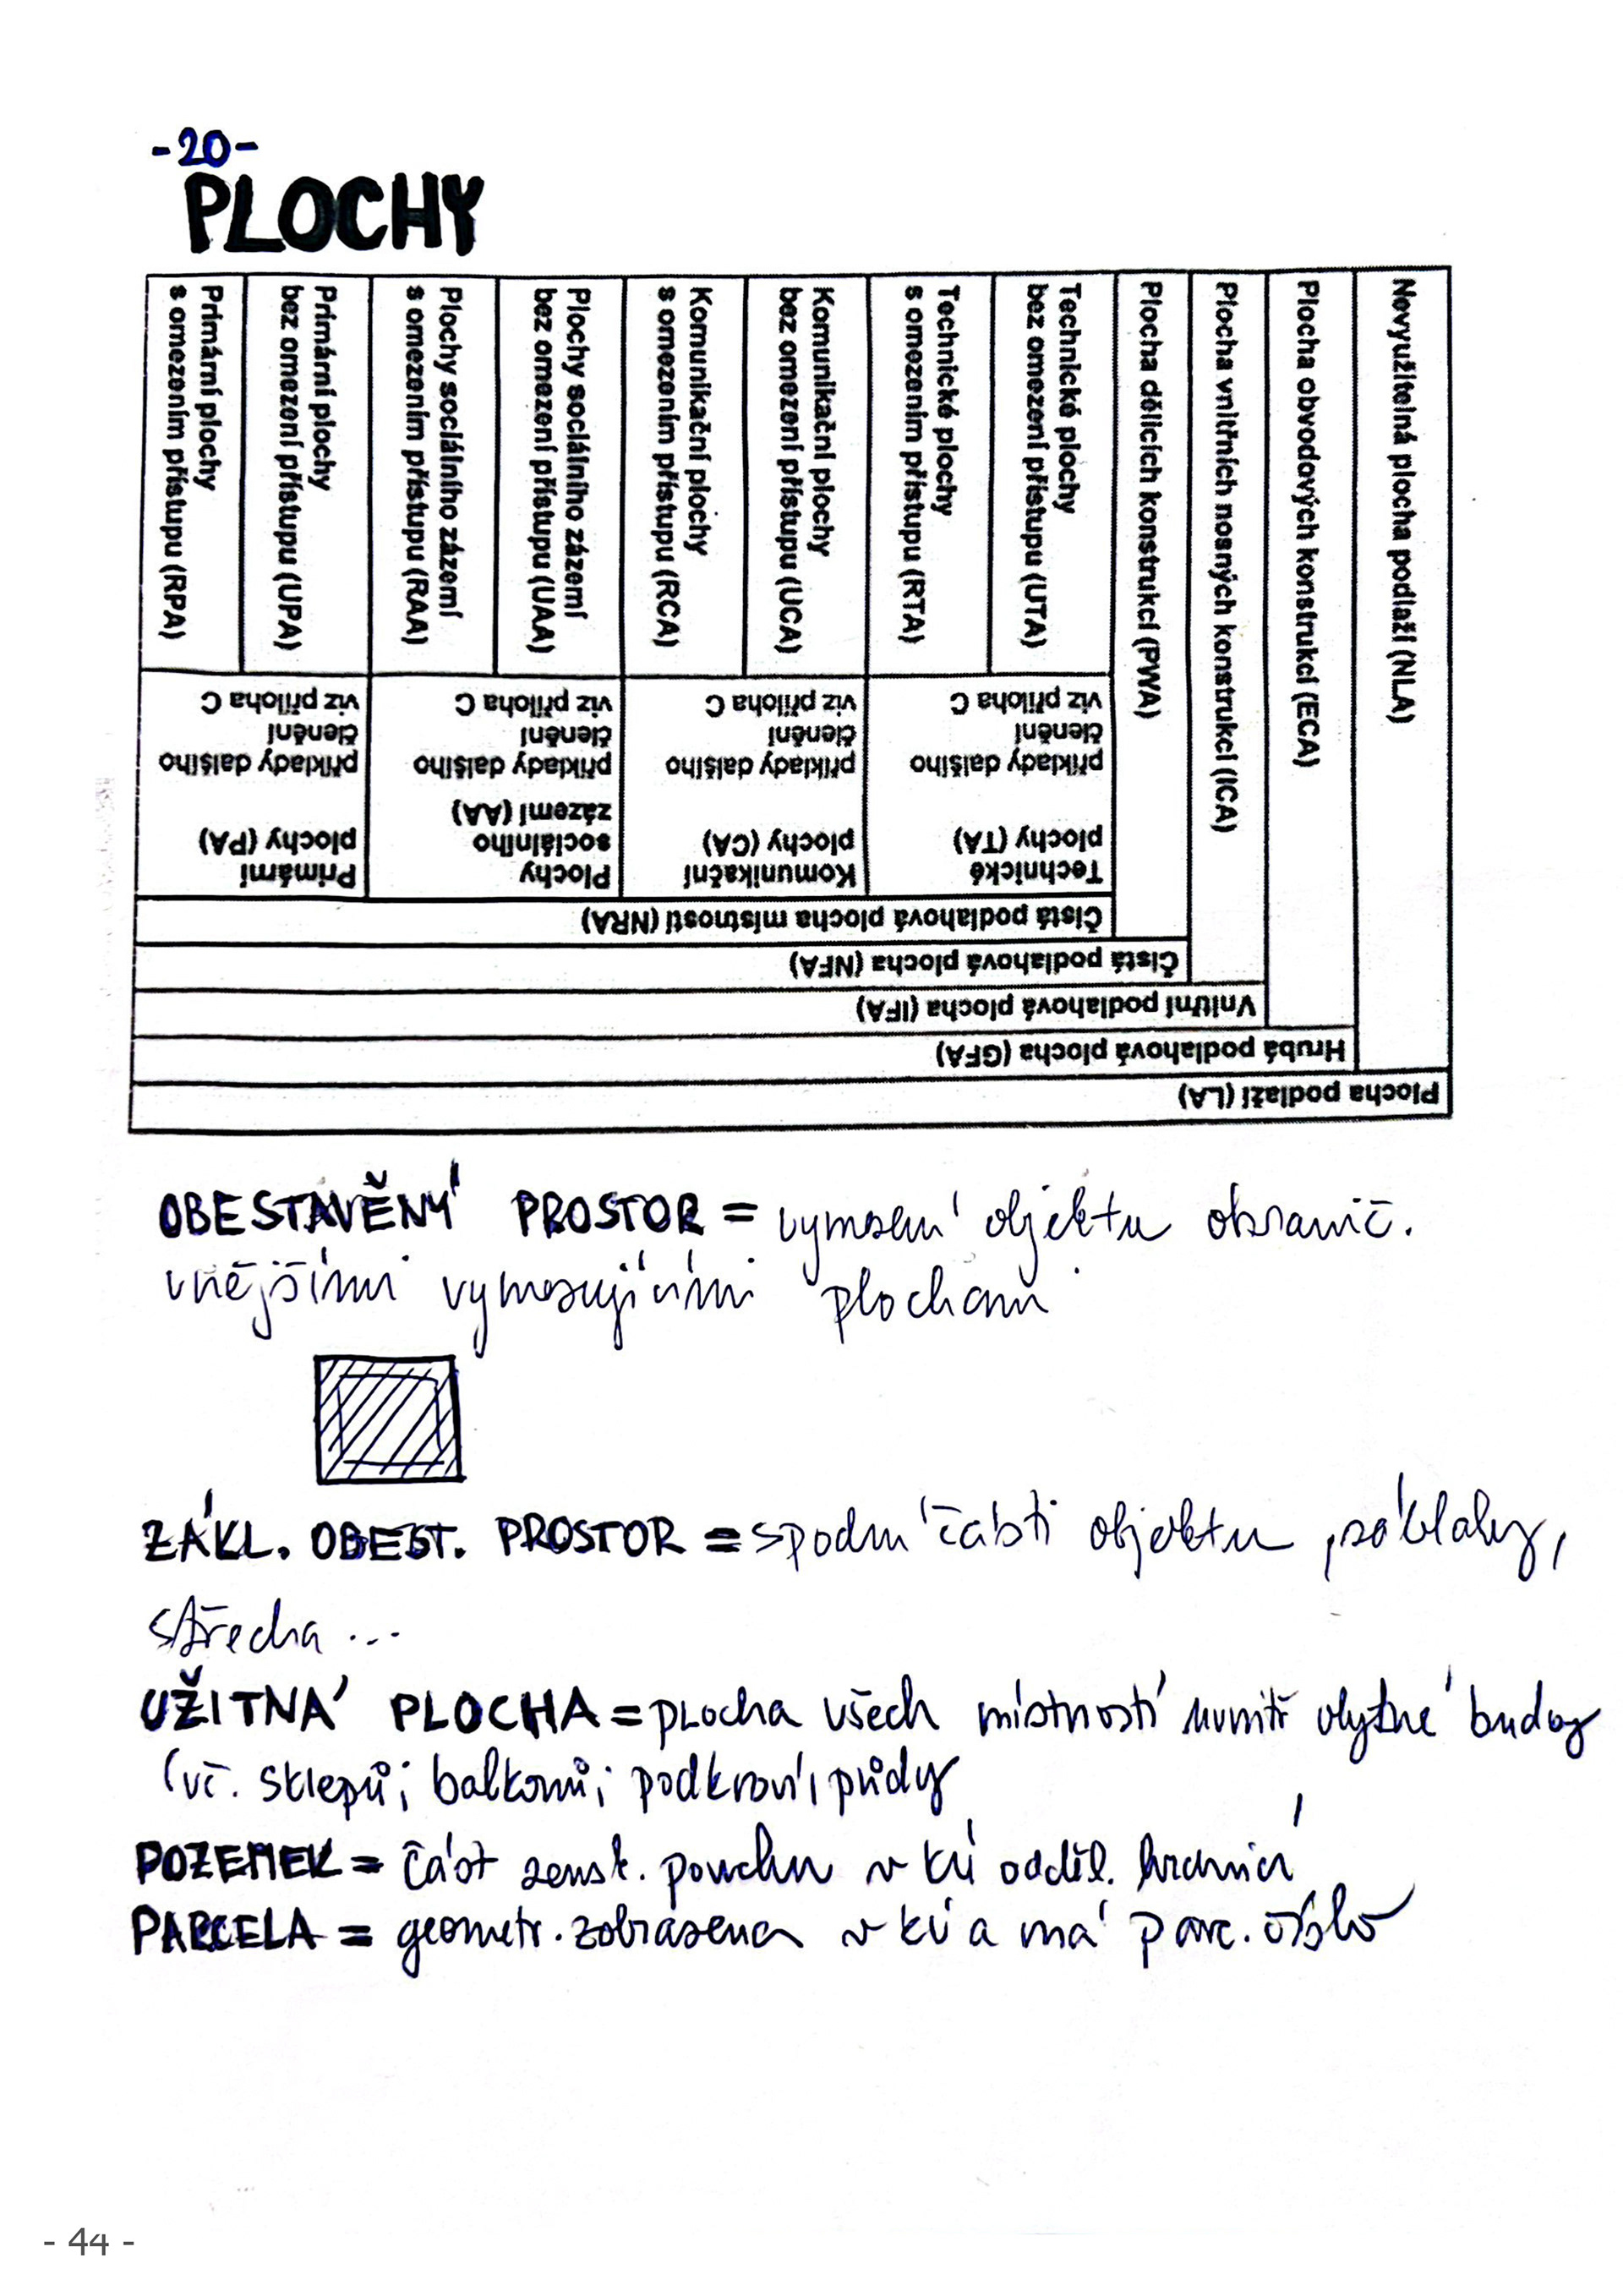 -20-
PLOCHY
Plocha podlaží (LA)
Hrubá podlahová plocha (GFA)
Nevyužitelná plocha podlaží (NLA)
Vnitřní podlahová plocha (IFA)
Plocha obvodových konstrukcí (ECA)
Čistá podlahová plocha (NFA)
Plocha vnitřních nosných konstrukcí (ICA)
Čistá podlahová plocha místností (NRA)
Plocha dělicích konstrukcí (PWA)
Technické
plochy (TA)
příklady dalšího
členění
viz příloha C
Technické plochy
bez omezení přístupu (UTA)
Technické plochy
s omezením přístupu (RTA)
Komunikační
plochy (CA)
příklady dalšího
členění
viz příloha C
Komunikační plochy
bez omezení přístupu (UCA)
Komunikační plochy
s omezením přístupu (RCA)
Plochy
sociálního
zázemí (AA)
příklady dalšího
členění
viz příloha C
Plochy sociálního zázemí
bez omezení přístupu (UAA)
Plochy sociálního zázemí
s omezením přístupu (RAA)
Primární
plochy (PA)
příklady dalšího
členění
viz příloha C
Primární plochy
bez omezení přístupu (UPA)
Primární plochy
s omezením přístupu (RPA)
OBESTAVĚNÝ PROSTOR = vymezení objektu ohranič.
vnějšími vymezujícími plochami
ZÁKL. OBEST. PROSTOR = spodní části objektu, základy,
střecha ...
UŽITNÁ PLOCHA = plocha všech místností uvnitř obytné budovy
(vč. sklepů; balkonů; podkroví, půdy
POZEMEK = část zemsk. povrchu v KÚ odděl. hranicí
PARCELA = geometr. zobrazena v KÚ a má parc. číslo
- 44 -